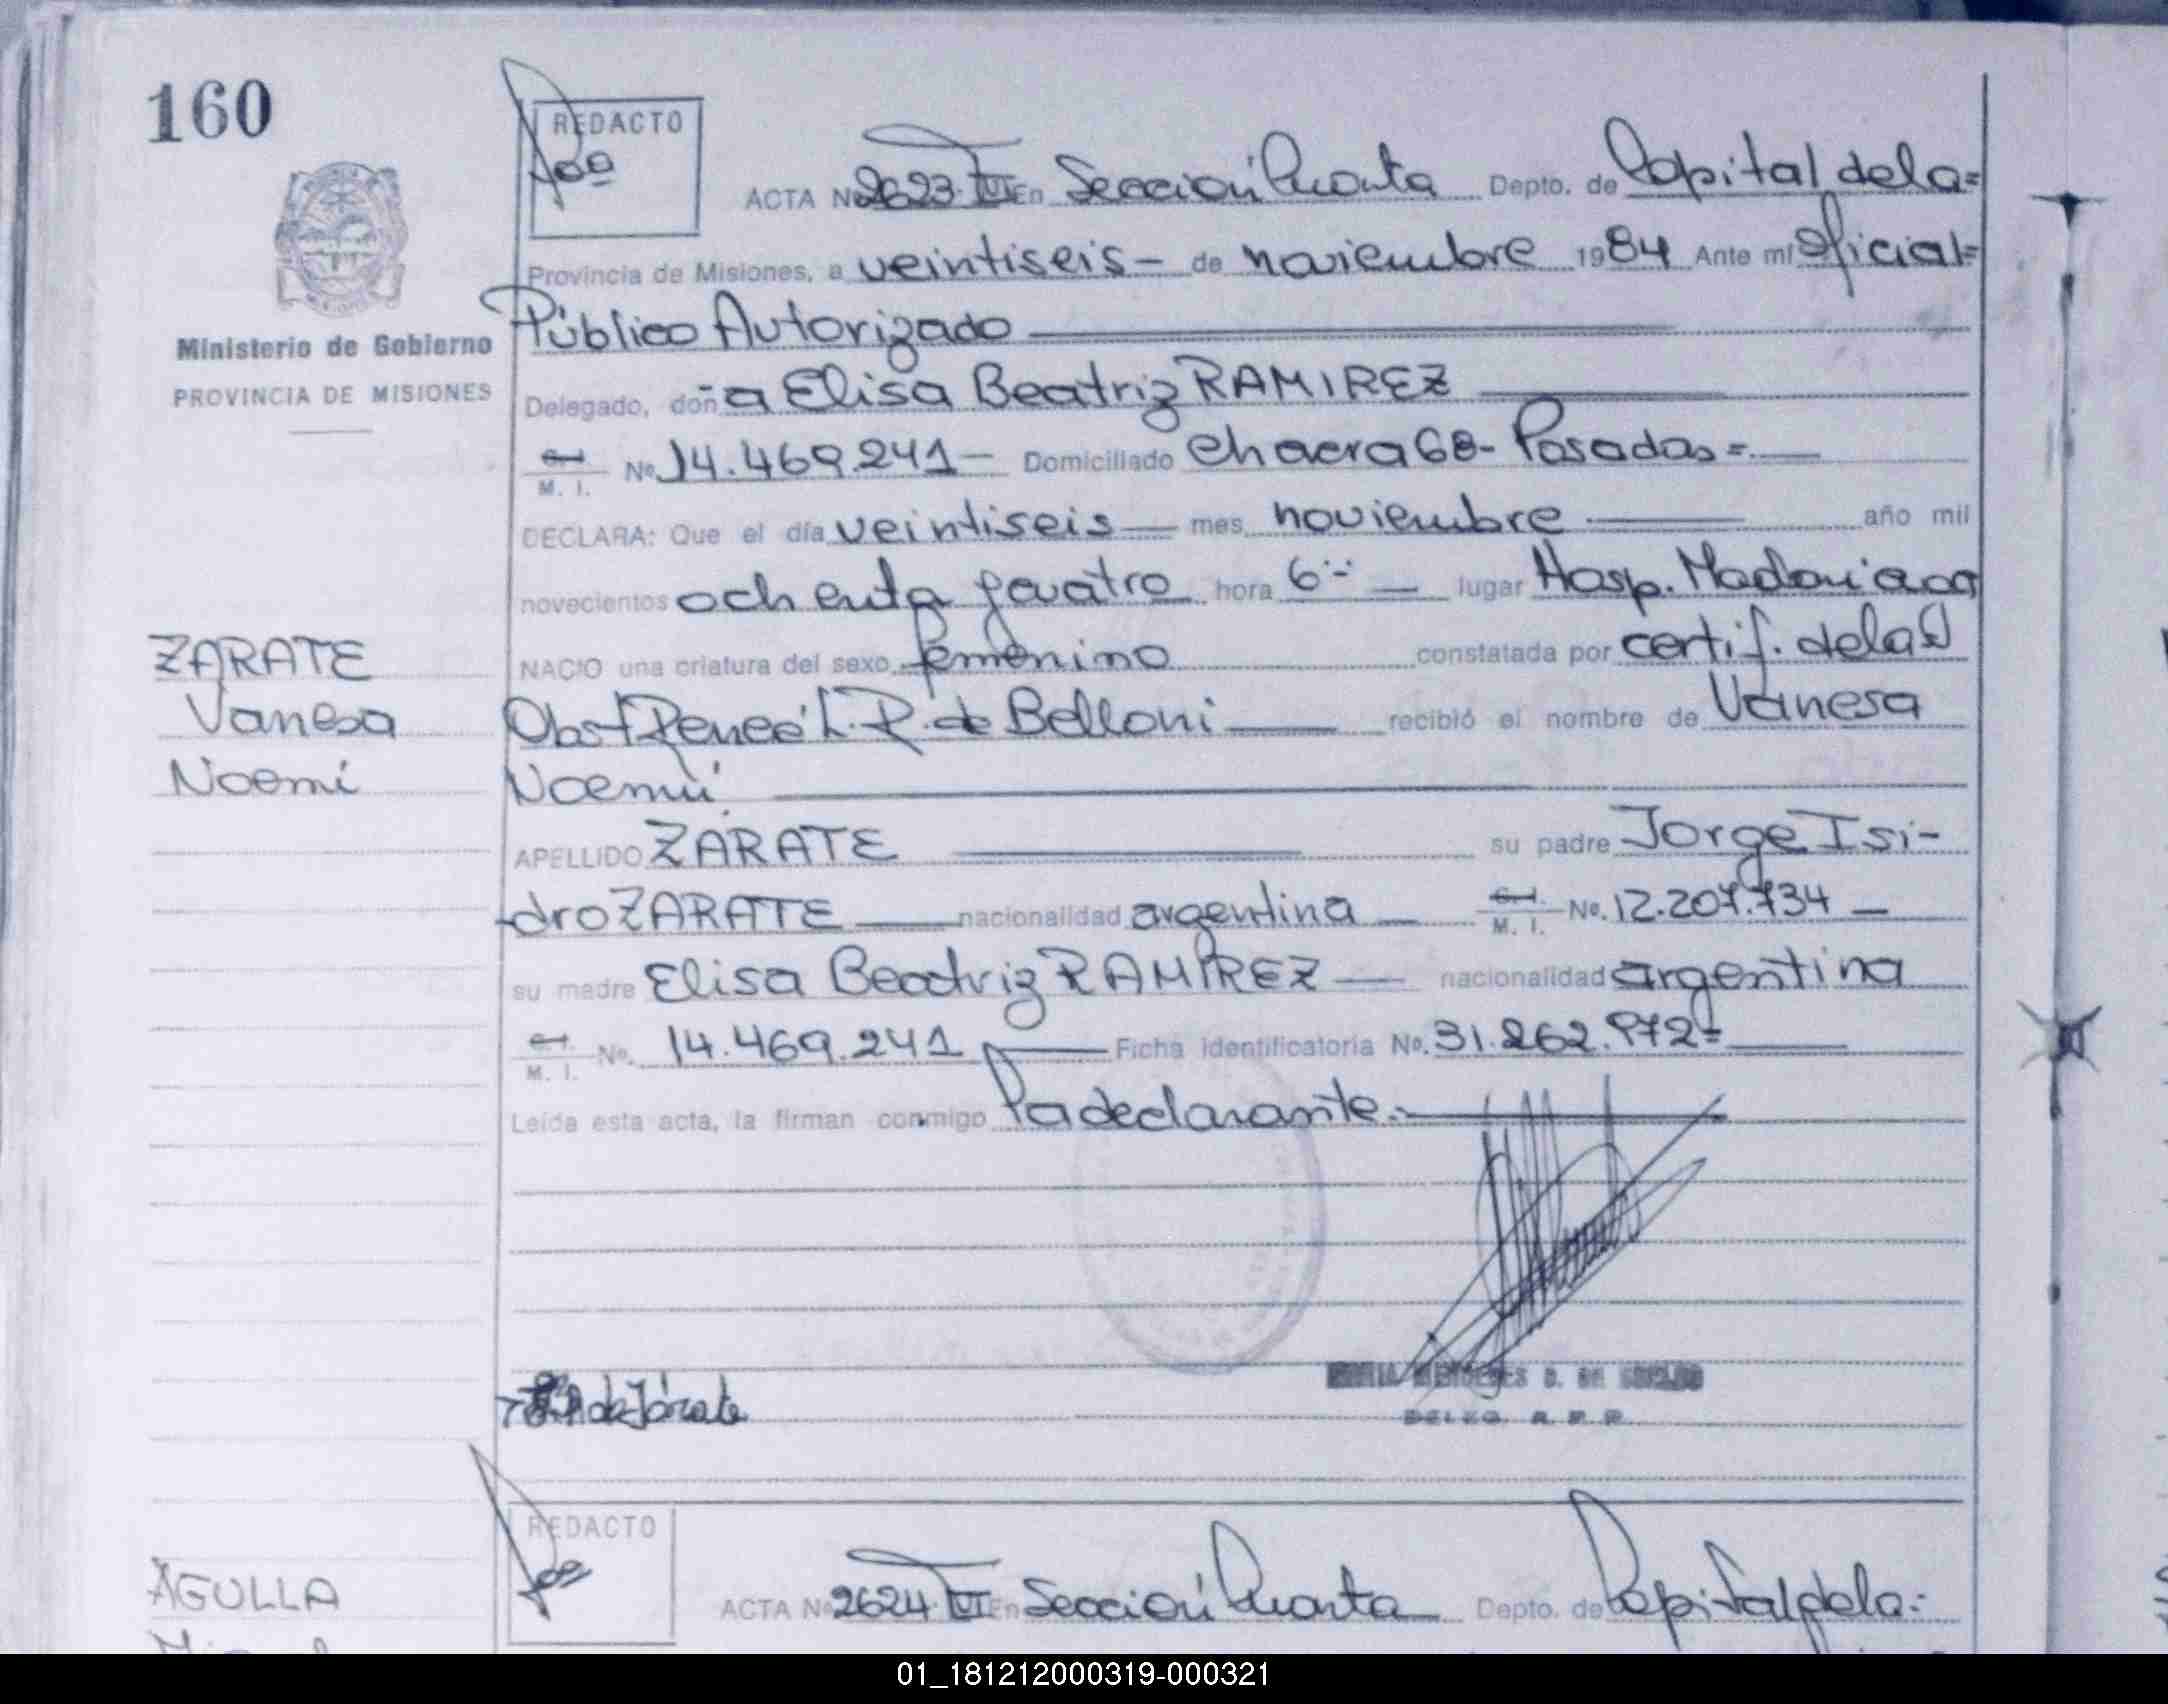 160
REDACTO
ACTA Nº 2623. VI En Sección Cuarta Depto. de Capital de la=
Provincia de Misiones, a veintiseis- de noviembre 1984 Ante mí Oficial=
Ministerio de Gobierno
PROVINCIA DE MISIONES
Público Autorizado
Delegado, doña Elisa Beatriz RAMIREZ
C.I. M. I. No. 14.469.241- Domiciliado Chacra 68- Posadas=.
DECLARA: Que el día veintiseis mes noviembre año mil
novecientos ochenta y cuatro hora 6 lugar Hosp. Madariaga
NACIO una criatura del sexo femenino constatada por certif. de la
ZARATE
Vanesa
Noemí
Obst Reneé L. R. de Belloni recibió el nombre de Vanesa
Noemí
APELLIDO ZARATE su padre Jorge Isi-
dro ZARATE nacionalidad argentina C.I. M. I. No. 12.207.734
su madre Elisa Beatriz RAMIREZ nacionalidad argentina
C.I. M. I. No. 14.469.241 Ficha identificatoria No. 31.262.972=
Leída esta acta, la firman conmigo la declarante.
de Zárate
DELEG. R. P. P.
REDACTO
AGULLA
ACTA Nº 2624 VI En Sección Cuarta Depto. de Capital de la:
01_181212000319-000321